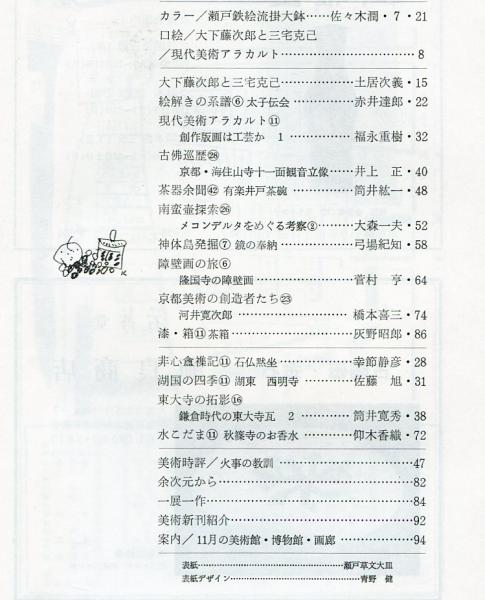 カラー／瀬戸鉄絵流掛大鉢……佐々木潤・7・21
口絵／大下藤次郎と三宅克己
／現代美術アラカルト……………………8
大下藤次郎と三宅克己……………土居次義・15
絵解きの系譜⑥ 太子伝会……………赤井達郎・22
現代美術アラカルト⑪
創作版画は工芸か 1……………福永重樹・32
古佛巡歴㉘
京都・海住山寺十一面観音立像……井上 正・40
茶器余聞㊷ 有楽井戸茶碗……………筒井紘一・48
南蛮壷探索㉖
メコンデルタをめぐる考察②………大森一夫・52
神体島発掘⑦ 鏡の奉納……………弓場紀知・58
障壁画の旅⑥
隆国寺の障壁画……………菅村 亨・64
京都美術の創造者たち㉓
河井寛次郎……………橋本喜三・74
漆・箱⑪茶箱……………灰野昭郎・86
非心盦襍記⑪ 石仏黙坐……………幸節静彦・28
湖国の四季⑪ 湖東 西明寺……………佐藤 旭・31
東大寺の拓影⑯
鎌倉時代の東大寺瓦 2……………筒井寛秀・38
水こだま⑪ 秋篠寺のお香水…………仰木香織・72
美術時評／火事の教訓……………………47
余次元から……………………82
一展一作……………………84
美術新刊紹介……………………92
案内／11月の美術館・博物館・画廊……………94
表紙……………………瀬戸草文大皿
表紙デザイン……………………青野 健